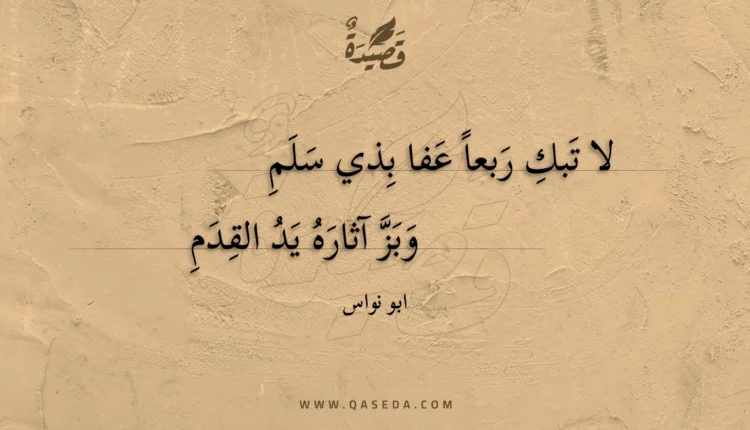 قَصِيْدَةٌ
لا تَبكِ رَبعاً عَفا بِذي سَلَمِ
وَبَزَّ آثارَهُ يَدُ القِدَمِ
ابو نواس
WWW.QASEDA.COM